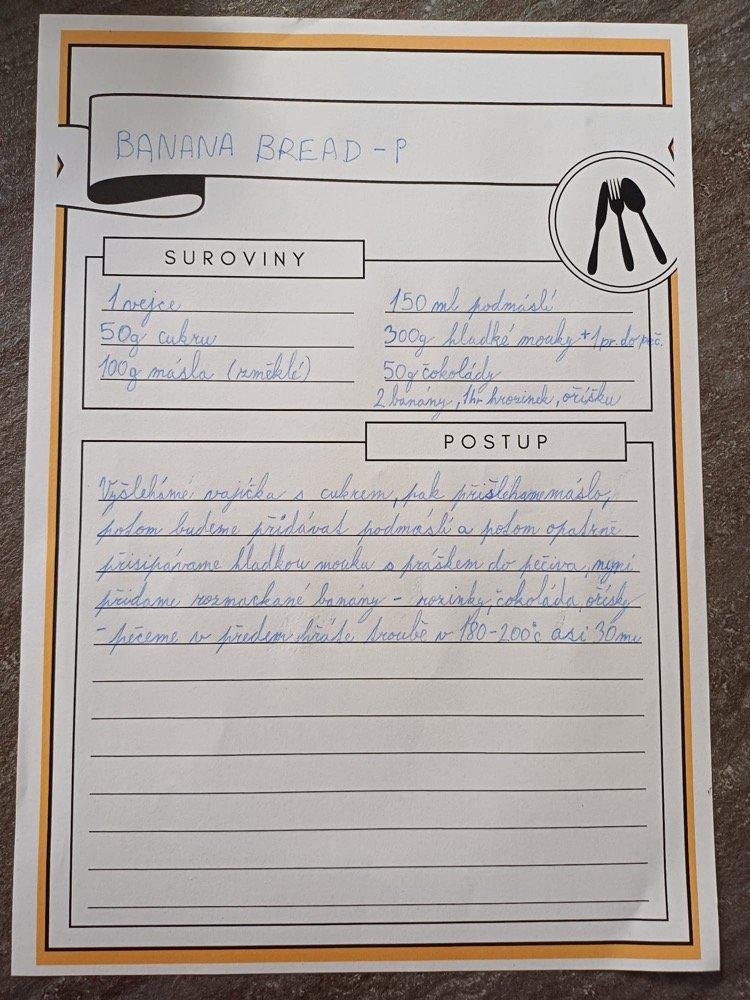 BANANA BREAD - P
SUROVINY
1 vejce
50g cukru
100g másla (změklé)
150 ml podmáslí
300g hladké mouky + 1 pr. do peč.
50g čokolády
2 banány, 1hr hrozinek, oříšku
POSTUP
Vyšleháme vajíčka s cukrem, pak přišleháme máslo,
potom budeme přidávat podmáslí a potom opatrně
přisipávame hladkou mouku s práškem do pečiva, nyní
přidame rozmackané banány - rozinky, čokoláda, oříšky
- pečeme v předem hřáte troubě v 180-200°c asi 30mu